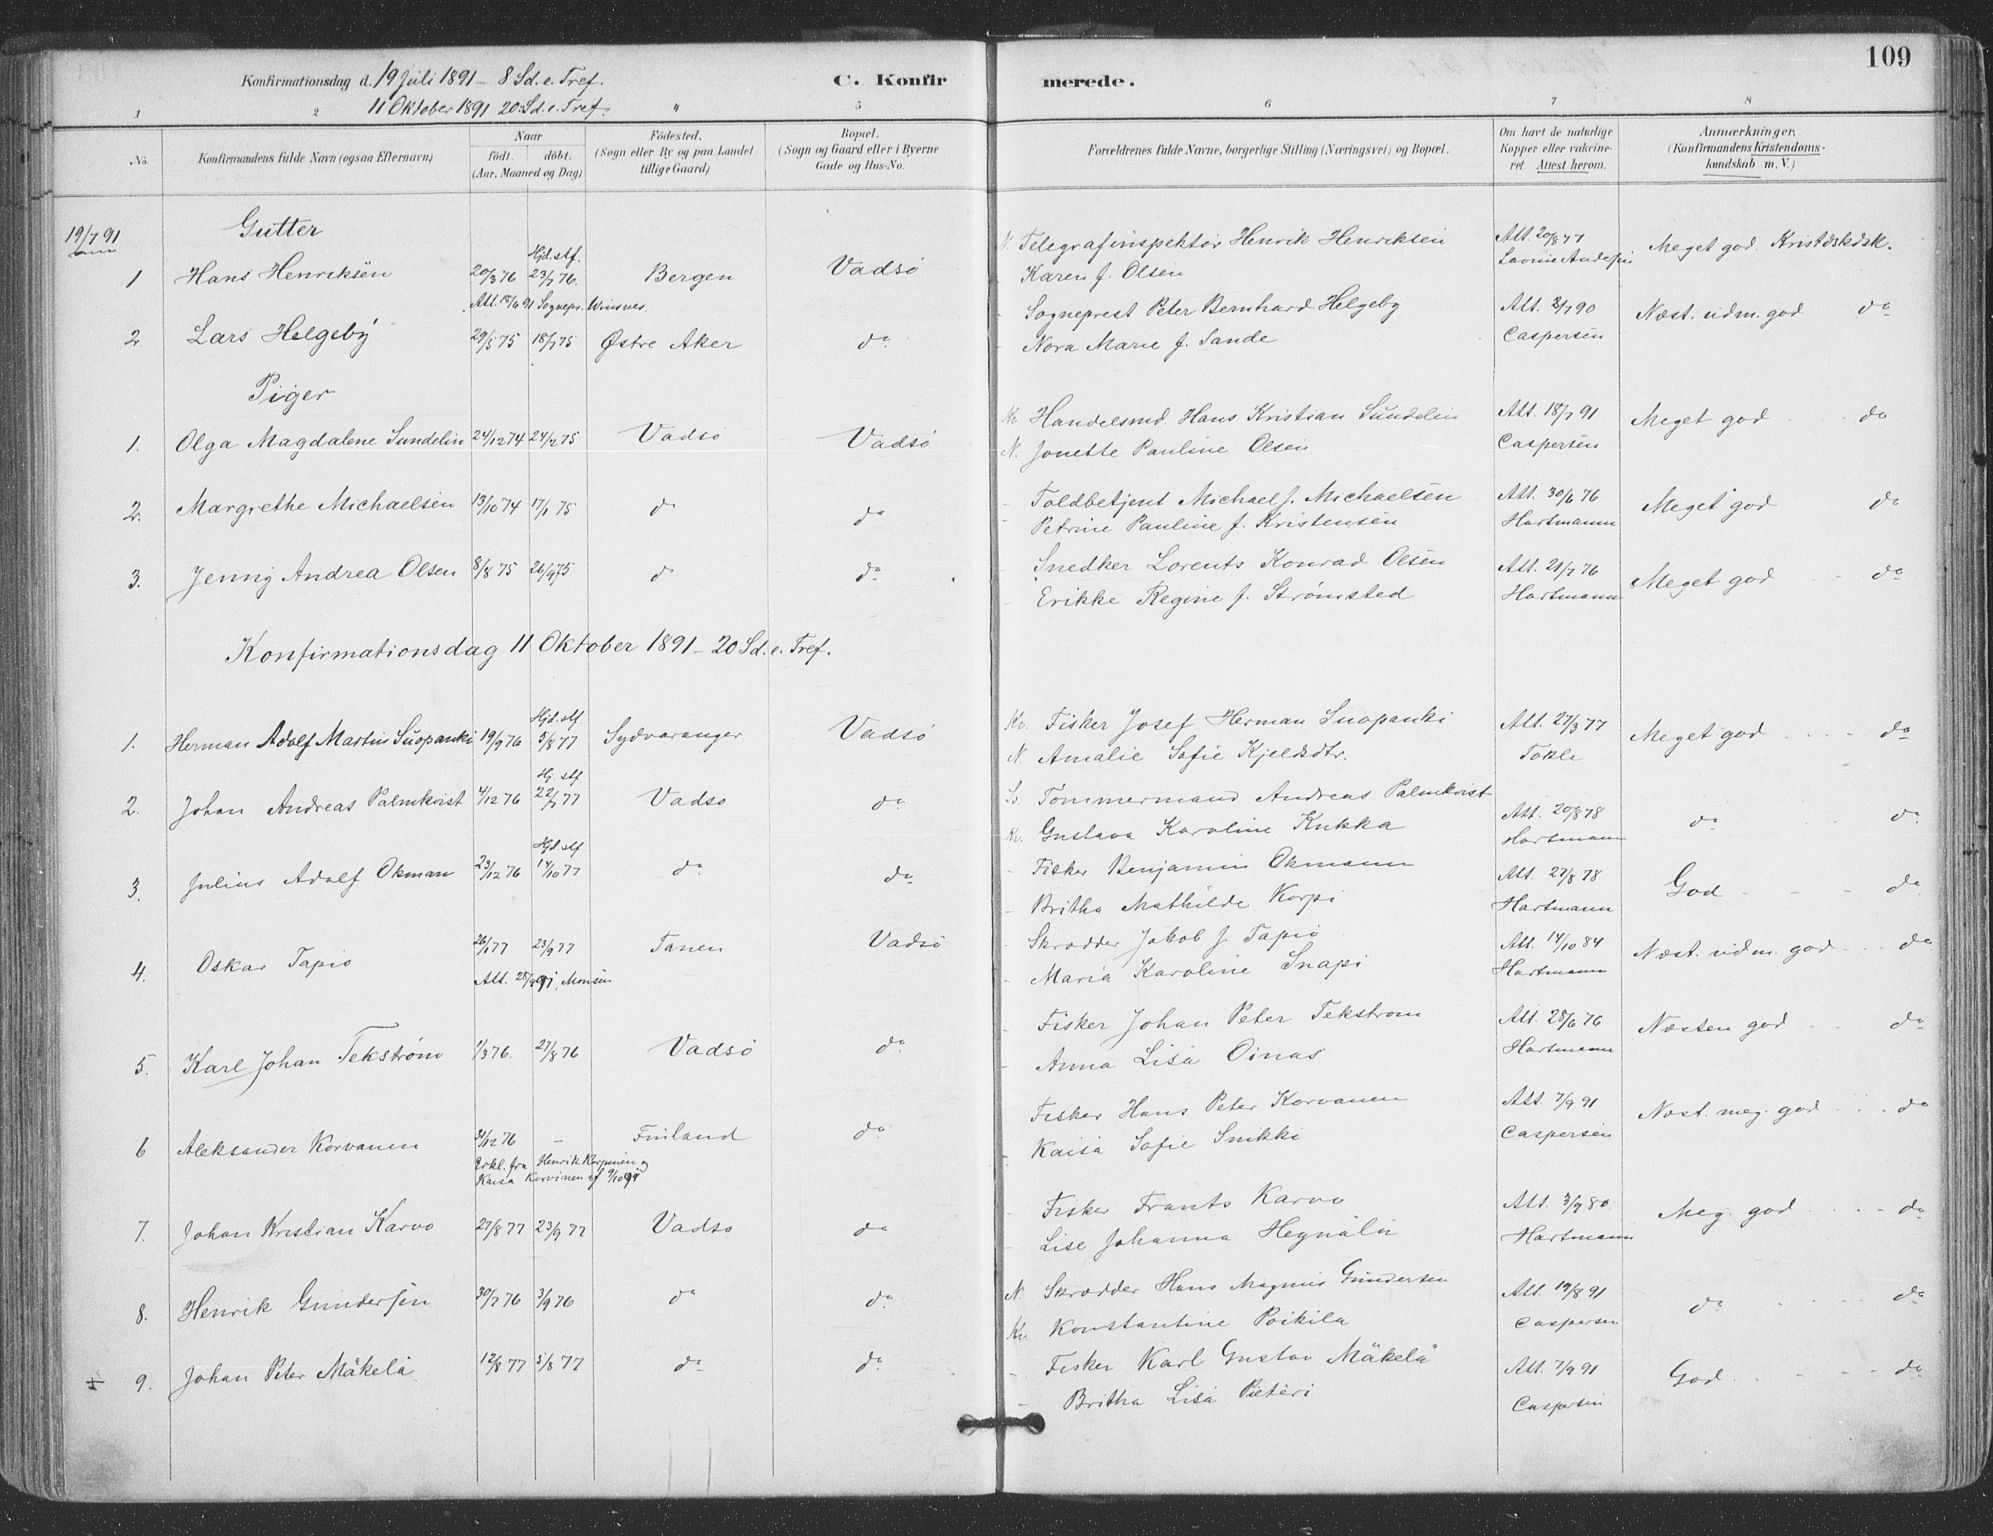 109
Konfirmationsdag d. 19 Juli 1891 - 8 Sd. e. Tref.
11 Oktober 1891 20. Sd. e. Tref.
C. Konfir merede.
1 2 4 5 6 7 8
No. Konfirmandens fulde Navn (ogsaa Efternavn) Naar födt. döbt. (Aar, Maaned og Dag) Födested. (Sogn eller By og paa Landet tillige Gaard) Bopæl. (Sogn og Gaard eller i Byerne Gade og Hus-No. Forældrenes fulde Navne, borgerlige Stilling (Næringsvei) og Bopæl. Om havt de naturlige Kopper eller vakcineret. Attest herom. Anmærkninger. (Konfirmandens Kristendomskundskab m. V.)
19/7 91 Gutter
1 Hans Henriksen 20/3 76 Hjd. stf. 23/7 76. Bergen Vadsö N. Telegrafinspektör Henrik Henriksen Att. 20/8 77 Meget god Kristdskdsk.
Karen f. Olsen
Att. 18/6 91 Sognepr.
2. Lars Helgeby 29/5 75 18/7 75 Østre Aker do Sogneprest Peter Bernhard Helgeby Att. 2/7 90 Næst. udm. god do
Nora Marie f. Sande Caspersen
Piger
1. Olga Magdalene Sundelin 24/12 74 24/2 75 Vadsö Vadsö Kv. Handelsmd. Hans Kristian Sundelin Att. 18/7 91 Meget god do
N. Jonette Pauline Olsen Caspersen
2. Margrethe Michaelsen 13/10 74 17/1 75 do do - Toldbetjent Michael J. Michaelsen Att. 30/6 76 Meget god do
- Petrine Pauline f. Kristensen Hartmann
3. Jenny Andrea Olsen 8/8 75 26/9 75 do do - Snedker Lorents Konrad Olsen Att. 21/7 76 Meget god - - do
- Erikke Regine f. Strömsted Hartmann
Konfirmationsdag 11 Oktober 1891 - 20 Sd. e. Tref.
1. Herman Adolf Martin Suopanki 19/9 76 Hjd. stf. 5/8 77 Sydvaranger Vadsö Kv. Fisker Josef Herman Suopanki Att. 27/3 77 Meget god - - - - do
N. Amalie Sofie Kjeldsdtr. Tokle
2. Johan Andreas Palmkvist 4/12 76 Hj. stf 22/7 77 Vadsö do Sv. Tömmermand Andreas Palmkvist Att. 20/8 78 do do
Kv. Gustava Karoline Kukka Hartmann
3. Julius Adolf Okman 23/12 76 Hjd. stf 14/10 77 do do - Fisker Benjamin Okmann Att. 27/8 78 God - - - do
- Britha Mathilde Korpi Hartmann
4. Oskar Tapio 26/1 77 23/9 77 Tanen Vadsö - Skrædder Jakob J. Tapio Att. 14/10 84 Næst. udm. god - - - do
Att. 25/9 91, Monsen - Maria Karoline Snapi Hartmann
5. Karl Johan Tekström 1/3 76. 27/8 76 Vadsö do - Fisker Johan Peter Tekström Att. 28/6 76 Næsten god - - do
- Anna Lisa Oinas Hartmann
6 Aleksander Korvanen 31/12 76 - Finland do - Fisker Hans Peter Korvanen Att. 7/9 91 Næst. meg. god - - - do
- Kaisa Sofie Snikki Caspersen
Erkl. fra Henrik Karpinen og
Kaisa Korvinen af 9/10 91
7. Johan Kristian Karvo 27/8 77 23/9 77 Vadsö do - Fisker Frants Karvo Att. 3/9 80 Meg. god - - - - do
- Lise Johanna Hartmann
8. Henrik Gundersen 30/7 76 3/9 76 do do N. Skrædder Hans Magnus Gundersen Att. 19/8 91 do - - - - do
Kv. Konstantine Poikila Caspersen
9. Johan Peter Mäkelä 12/8 77 5/8 77 do do - Fisker Karl Gustav Mäkelä Att. 7/9 91 God - - - - do
- Britha Lisa Pieteri Caspersen